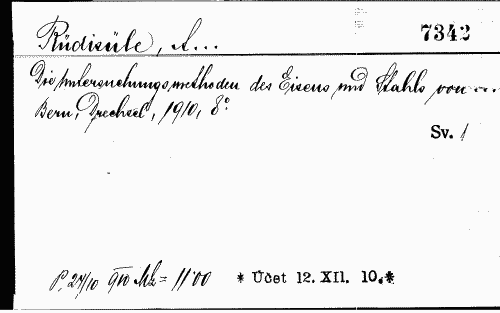 Rüdisüle, A...
7342
Die Untersuchungsmethoden des Eisens und Stahls von ...
Bern, Drechsel, 1910, 8°
Sv. 1
P. 24/10 9 50 Mk = 11·00 * Účet 12. XII. 10.*